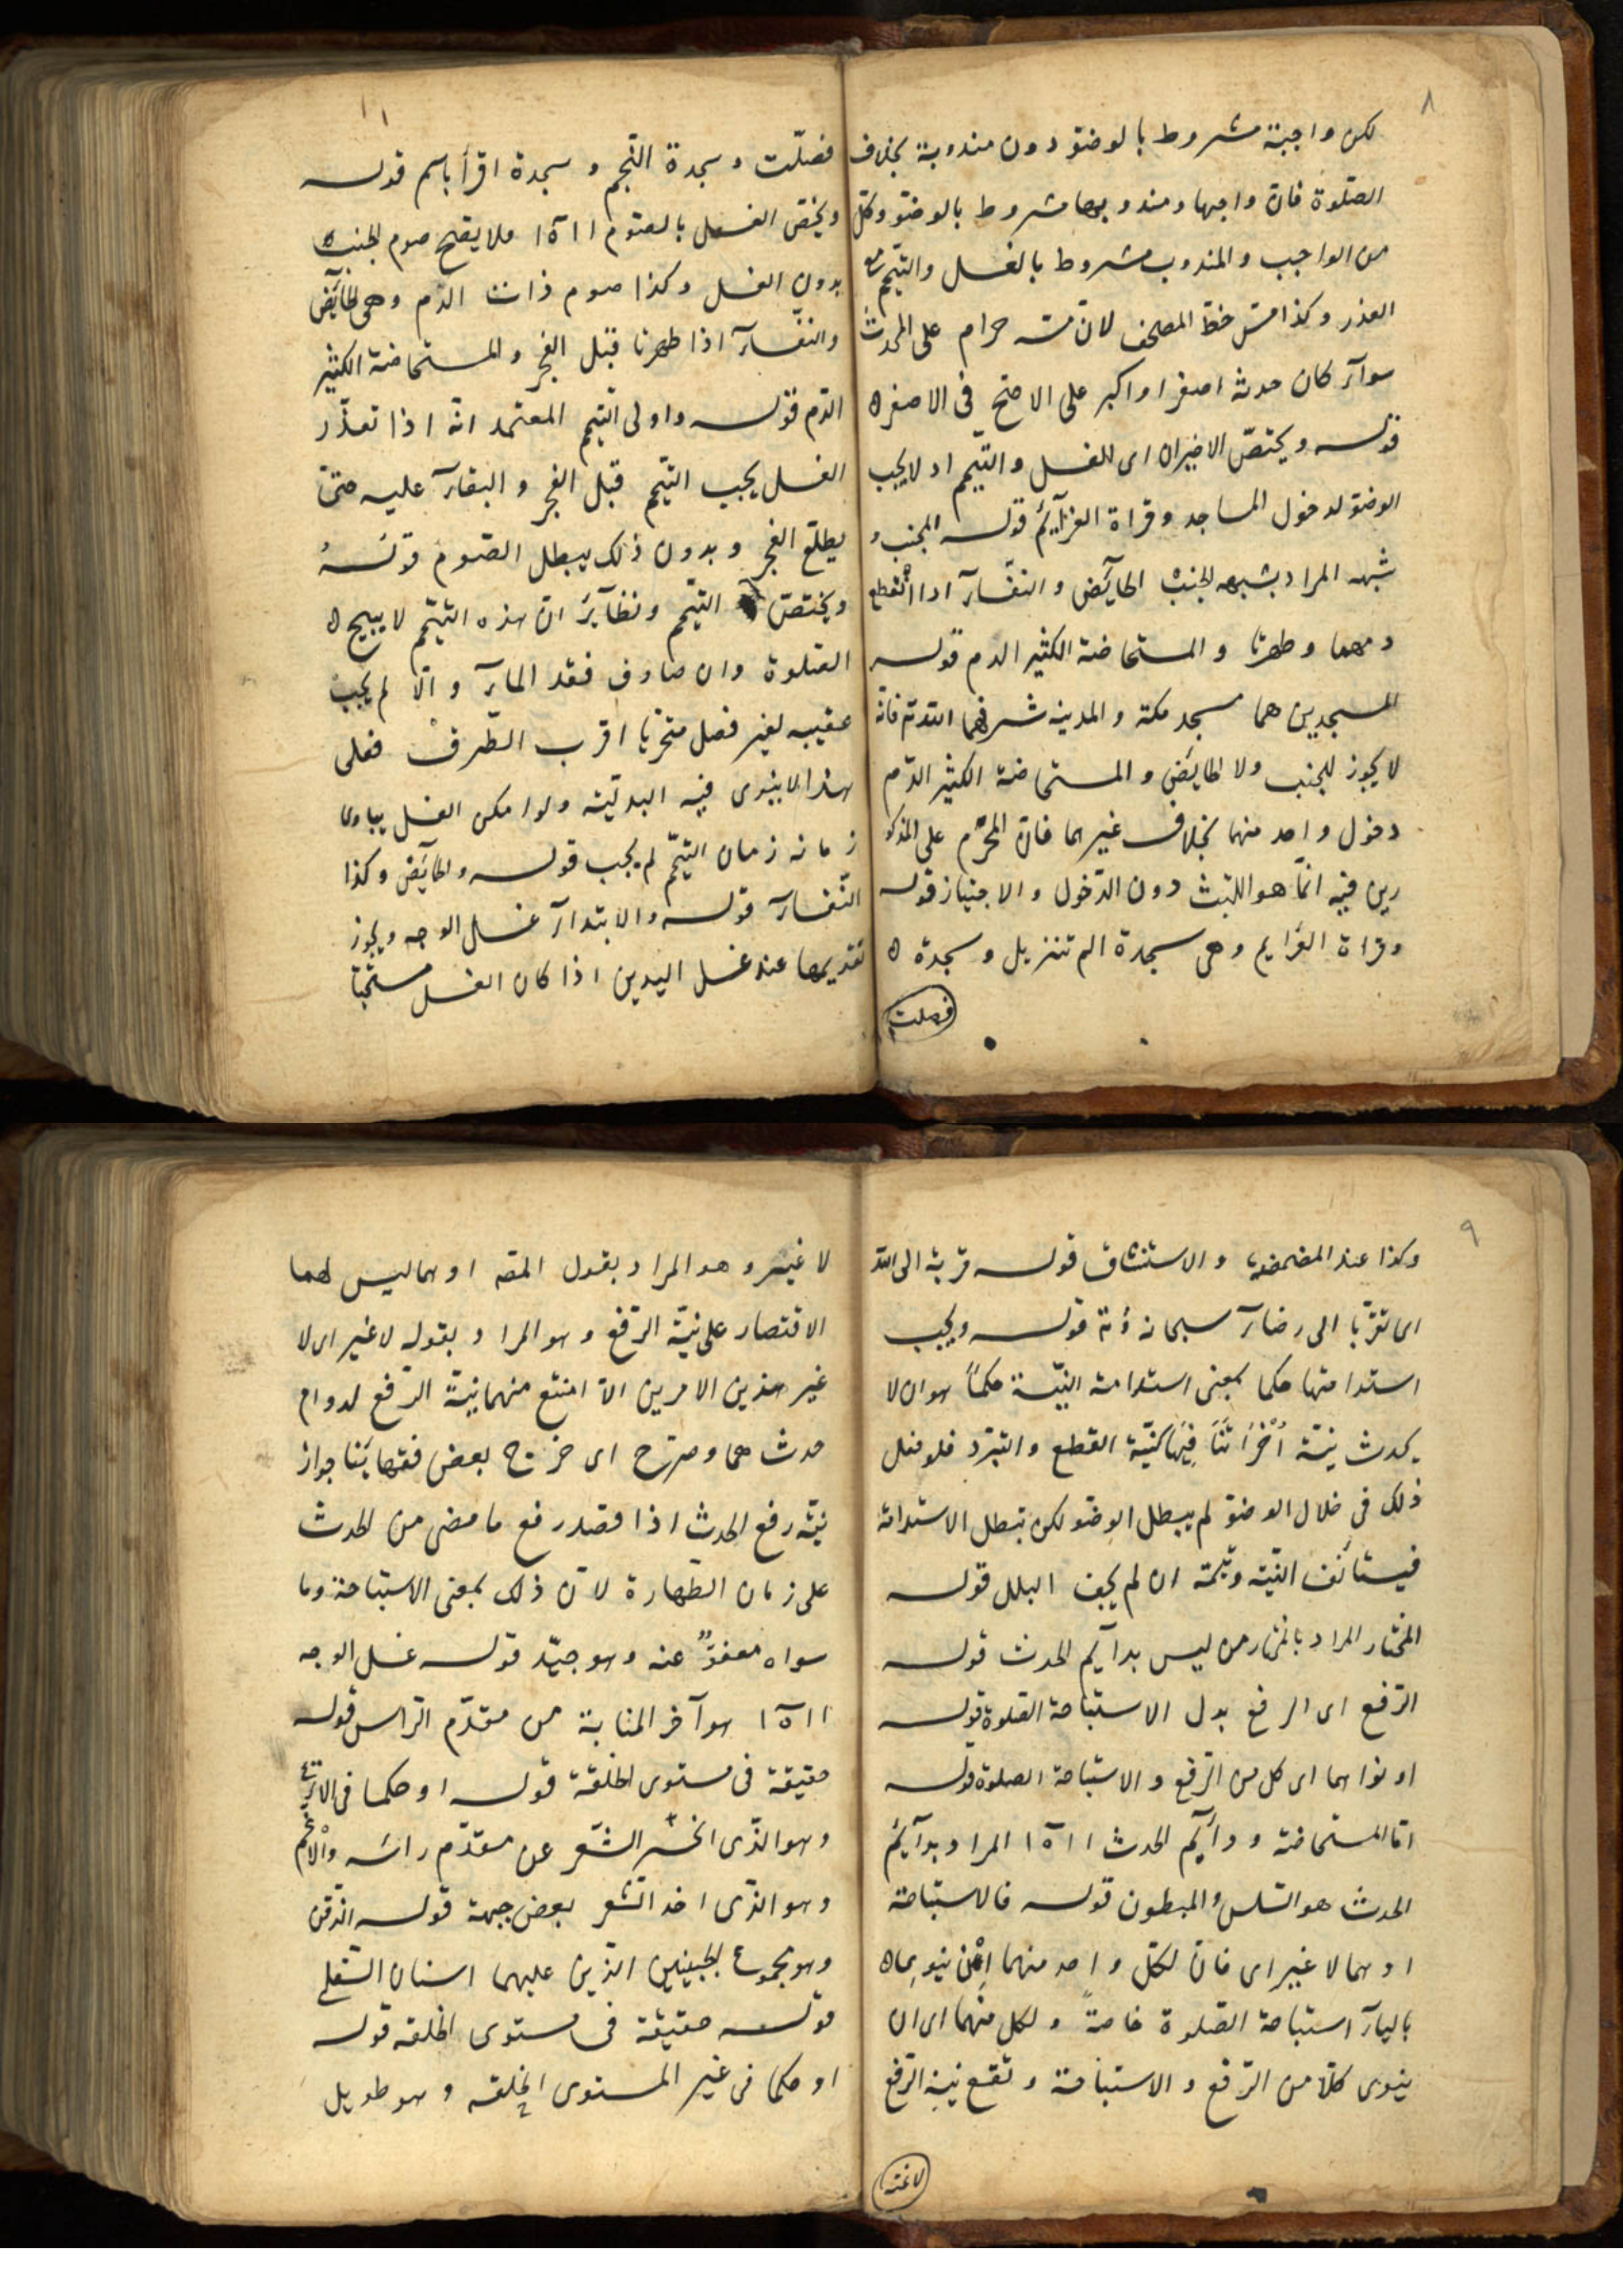 ٨
لكن واجبة مشروط بالوضوء دون مندوبة بخلاف
الصّلوة فان واجبها ومندوبها مشروط بالوضوء وكلّ
من الواجب والمندوب مشروط بالغسل والتيمّم مع
العذر وكذا مسّ خطّ المصحف لانّ مسّه حرام على المحدث
سوآء كان حدثه اصغر او اكبر على الاصحّ فى الاصغر ه
قوله ويختصّ الاخيران اى الغسل والتيمّم اذ لا يجب
الوضوء لدخول المساجد وقراة العزآيم قوله الجنب و
شبهه المراد بشبهه الجنب الحآيض والنفسآء اذا انقطع
دمهما وطهرتا والمستحاضة الكثير الدم قوله
المسجدين هما مسجد مكة والمدينه شرفهما الله تع فانّه
لا يجوز للجنب ولا الحايض والمستحاضة الكثير الدّم
دخول واحد منهما بخلاف غيرهما فانّ المحرّم على المذكو
رين فيه انّما هو اللبث دون الدّخول والاجتياز قوله
وقراة العزايم وهى سجدة الم تنزيل وسجدة ه
فصلت
١١
فصّلت وسجدة النّجم وسجدة اقرأ باسم قوله
ويختصّ الغسل بالصّوم ١١ ه‍ ١ فلا يصحّ صوم الجنب ه
بدون الغسل وكذا صوم ذات الدّم وهى الحآيض
والنفسآء اذا طهرتا قبل الفجر والمستحاضة الكثير
الدّم قوله واولى التيمّم المعتمد انّه اذا تعذّر
الغسل يجب التيمّم قبل الفجر والبقآء عليه حتّى
يطلع الفجر وبدون ذلك يبطل الصّوم قوله
ويختصّ التيمّم ونظآير انّ هذه التيمّم لا يبيح ه
الصّلوة وان صادف فقد المآء والّا لم يجب
عقيبه لغير فصل متحرّيا اقرب الطّرق فعلى
هذا لا ينوى فيه البدليّة ولو امكن الغسل يساوى
زمانه زمان التيمّم لم يجب قوله والحآيض وكذا
النّفسآء قوله والابتدآء غسل الوجه ويجوز
تقديمها عند غسل اليدين اذا كان الغسل مستحبّا
٩
وكذا عند المضمضة والاستنشاق قوله قربة الى الله
اى تقرّبا الى رضآء سبحانه وتع قوله ويجب
استدامتها حكما بمعنى استدامة النيّة حكماً هو ان لا
يحدث نيّة اُخْرَى تنَافِيَها كنيّة القطع والتبرّد فلو فعل
ذلك فى خلال الوضوء لم يبطل الوضوء لكن تبطل الاستدامة
فيستأنف النيّة ويتمّه ان لم يجف البلل قوله
المختار المراد بالمختار من ليس بدآيم الحدث قوله
الرّفع اى الرفع بدل الاستباحة الصّلوة قوله
او نواهما اى كل من الرّفع والاستباحة الصلوة قوله
امّا المستحاضة ودآيم الحدث ١١ ه‍ ١ المراد بدآيم
الحدث هو السّلس والمبطون قوله فالاستباحة
او هما لا غير اى فانّ لكلّ واحد منهما ان ينويها ه
باليآء استباحة الصّلوة خاصةً ولكل منهما اى ان
ينوى كلّا من الرّفع والاستباحة وتقع نيّة الرّفع
لاغيه
لا غير وهو المراد بقول المصّ او هما ليس لهما
الاقتصار على نيّة الرّفع وهو المراد بقوله لا غير اى لا
غير هذين الامرين الّا امتنع منهما نيّة الرّفع لدوام
حدثهما وصرّح اى خرّج بعض فقهآئنا جواز
نيّة رفع الحدث اذا قصد رفع ما مضى من الحدث
على زمان الطّهارة لانّ ذلك بمعنى الاستباحة وما
سواه معفوٌّ عنه وهو جيّد قوله غسل الوجه
١١ ه‍ ١ هو آخر المنابة من مقدّم الرّاس قوله
حقيقة فى مستوى الخلقة قوله او حكما فى الانزع
وهو الذّى انحسر الشّعر عن مقدّم راسه والاغم
وهو الذّى اخذ الشّعر بعض جبهة قوله الذّقن
وهو مجموع الجبينين الذّين عليهما اسنان السّفلى
قوله حقيقة فى مستوى الخلقه قوله
او حكما فى غير المستوى الخلقه وهو طويل